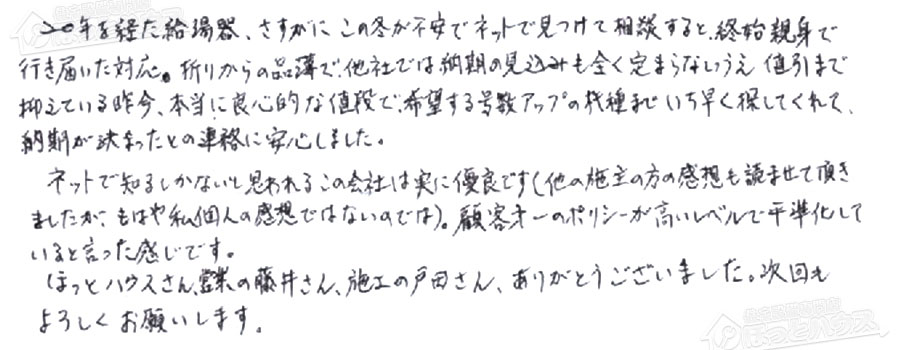 20年を経た給湯器、さすがにこの冬が不安でネットで見つけて相談すると、終始親身で
行き届いた対応。折りからの品薄で、他社では納期の見込みも全く定まらないうえ値引まで
抑えている昨今、本当に良心的な値段で、希望する号数アップの機種までいち早く探してくれて、
納期が決まったとの連絡に安心しました。
ネットで知るしかないと思われるこの会社は実に優良です(他の施主の方の感想も読ませて頂き
ましたが、もはや私個人の感想ではないのでは)。顧客オーのポリシーが高いレベルで平準化して
いると言った感じです。
ほっとハウスさん、営業の藤井さん、施工の戸田さん、ありがとうございました。次回も
よろしくお願いします。
ほっとハウス
ほっとハウス